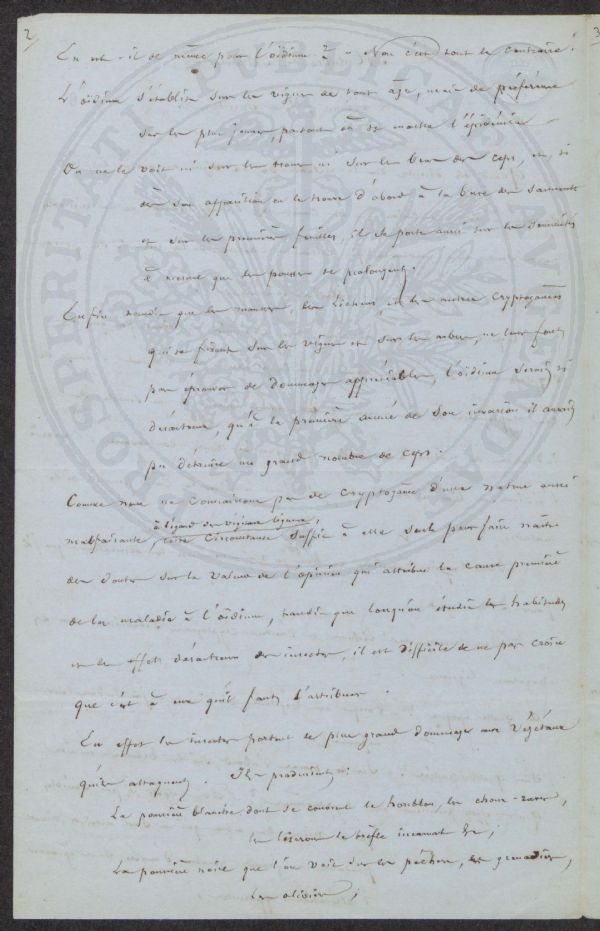 2
3
En est-il de même pour l'oïdium ? — Non c'est tout le contraire.
L'oïdium s'établit sur les vignes de tout âge, mais de préférence
sur les plus jeunes, partout où se montre l'épidémie
On ne le voit ni sur les troncs ni sur les bras des ceps, et, si
dès son apparition on le trouve d'abord à la base des sarments
et sur les premières feuilles, il se porte aussi sur les sommités
à mesure que les pousses se prolongent.
Enfin tandis que les mousses, les lichens, et les autres cryptogames
qui se fixent sur les vignes et sur les arbres, ne leur font
pas éprouver de dommages appréciables, l'oïdium serait si
désastreux, qu'à la première année de son invasion il aurait
pu détruire un grand nombre de ceps.
Comme nous ne connaissons pas de cryptogame d'une nature aussi
à l'égard des végétaux ligneux,
malfaisante, cette circonstance suffit à elle seule pour faire naître
des doutes sur la valeur de l'opinion qui attribue la cause première
de la maladie à l'oïdium, tandis que lorsqu'on étudie les habitudes
et les effets désastreux des insectes, il est difficile de ne pas croire
que c'est à eux qu'il faut l'attribuer.
En effet les insectes portent le plus grand dommage aux végétaux
qu'ils attaquent. Ils produisent:
La poussière blanche dont se couvrent le houblon, les choux-raves,
les liserons le trèfle incarnat &c;
La poussière noire que l'on voit sur les pêchers, les grenadiers,
les oliviers;
PROSPERITATI PUBLICAE AUGENDAE